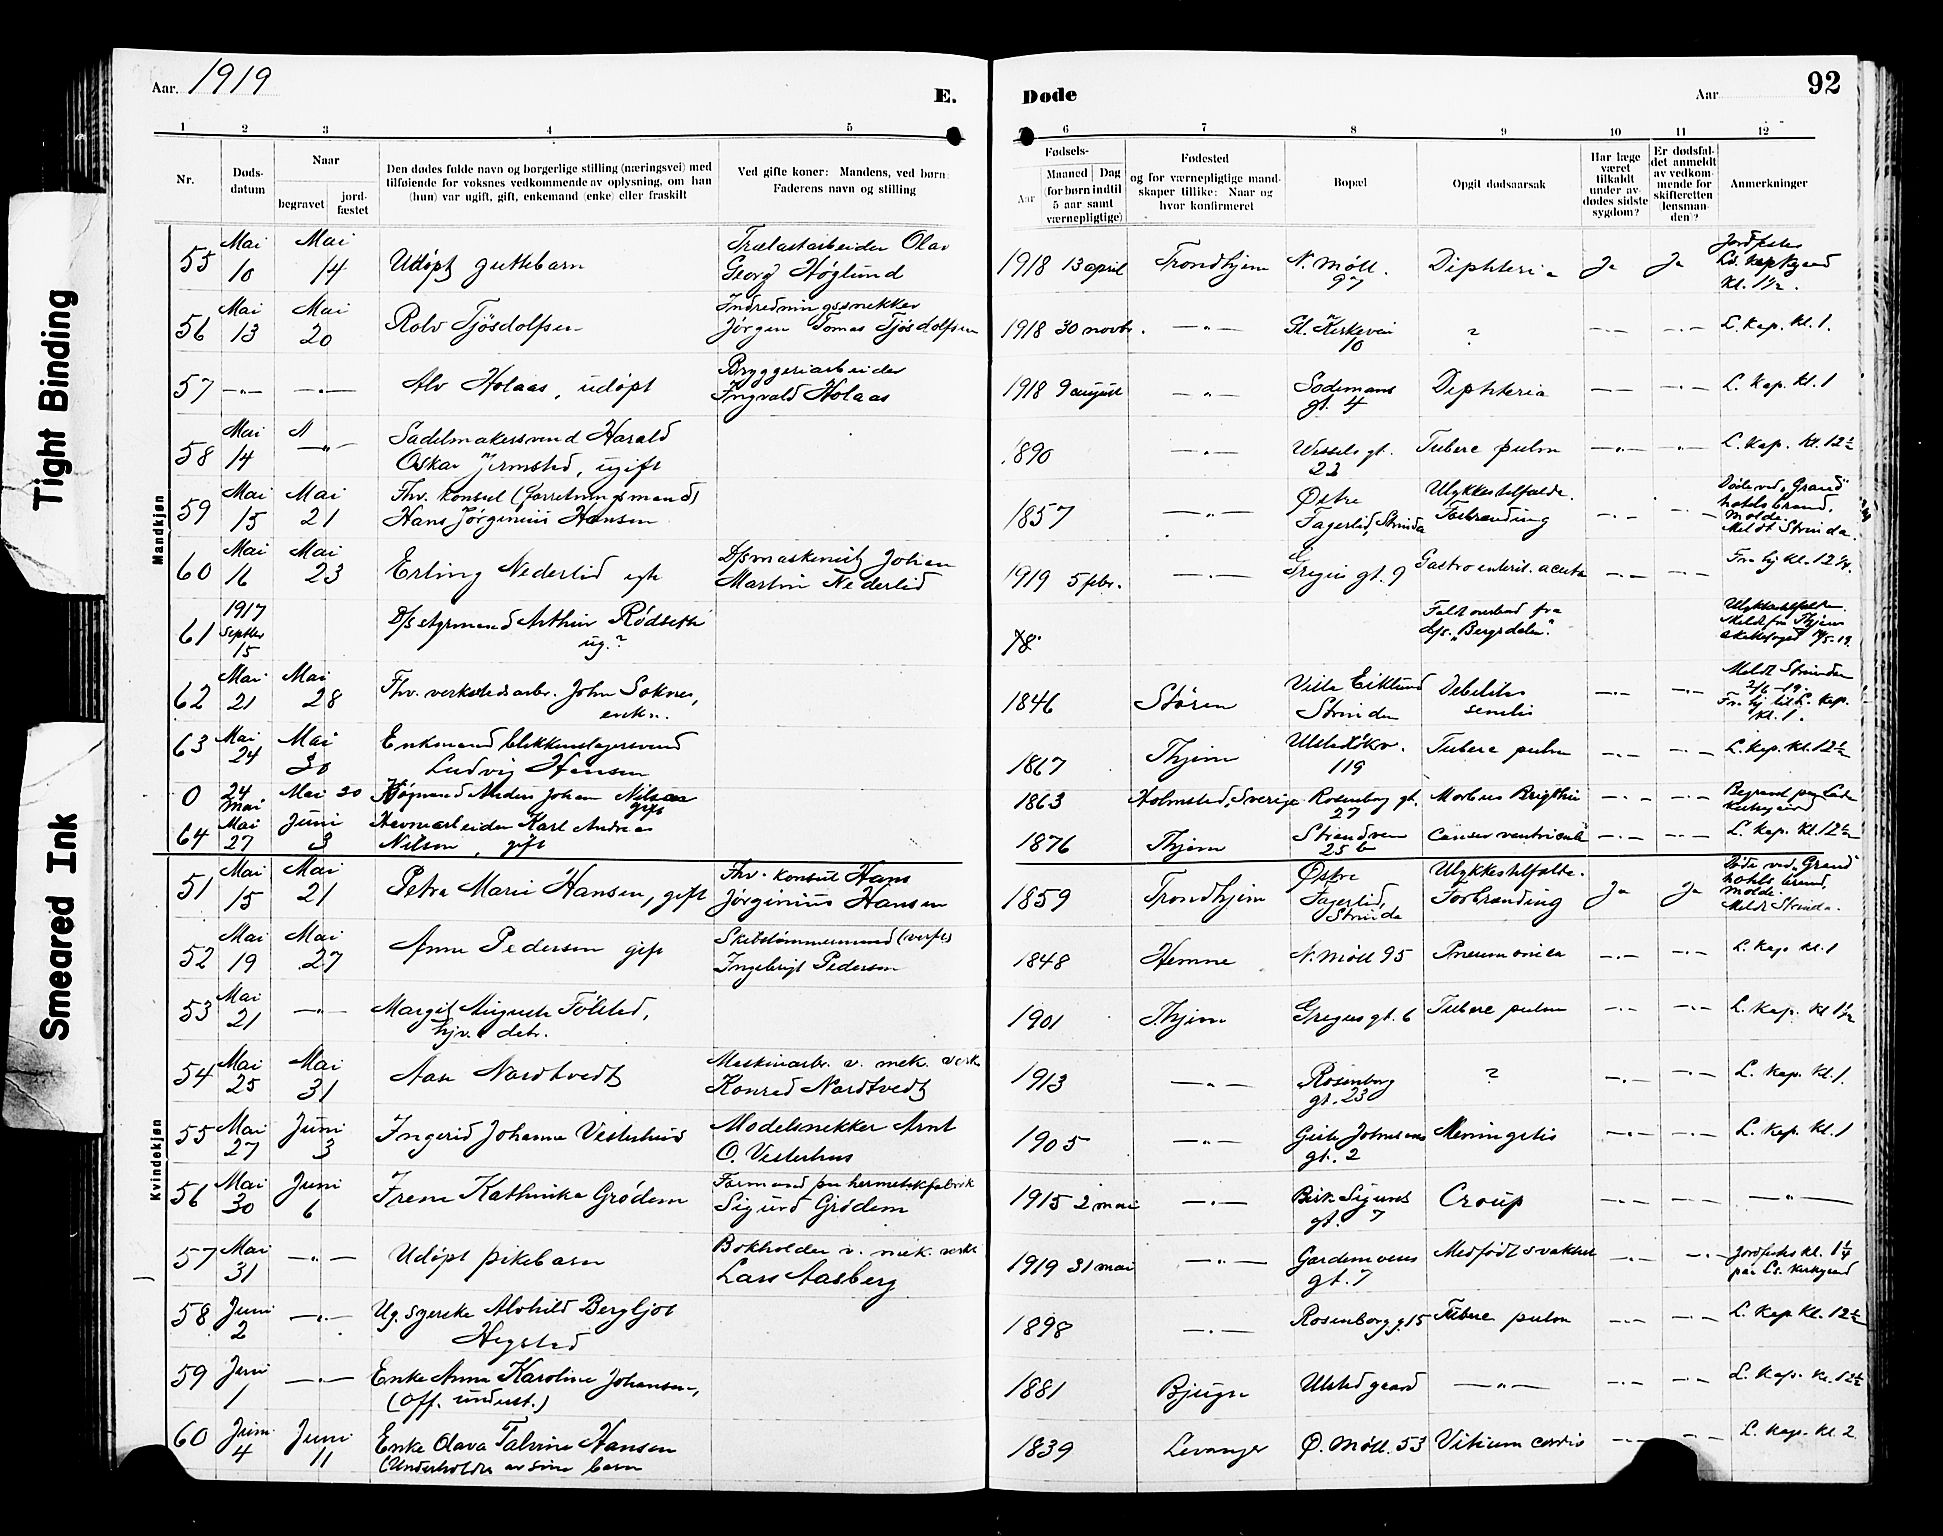 Tight Binding
Smeared Ink
Aar. 1919
E.
Døde
Aar
92
1 2 3 4 5 6 7 8 9 10 11 12
Nr.
Døds-
datum
Naar
begravet
jord-
fæstet
Den dødes fulde navn og borgerlige stilling (næringsvei) med
tilføiende for voksnes vedkommende av oplysning, om han
(hun) var ugift, gift, enkemand (enke) eller fraskilt
Ved gifte koner: Mandens, ved børn:
Faderens navn og stilling
Fødsels-
Aar
Maaned Dag
(for børn indtil
5 aar samt
værnepligtige)
Fødested
og for værnepligtige mand-
skaper tillike: Naar og
hvor konfirmeret
Bopæl
Opgit dødsaarsak
Har læge
været
tilkaldt
under av-
dødes sidste
sygdom?
Er dødsfal-
det anmeldt
av vedkom-
mende for
skifteretten
(lensman-
den)?
Anmerkninger
Mandkjøn
55 Mai 10 Mai 14 Udøpt guttebarn
Trælastarbeider Olav
Georg Høglund
1918 13 april Trondhjem N. Møll. 97 Diphteria Ja Ja
Kl. 1½.
56 Mai 13 Mai 20 Rolv Tjøsdolfsen
Indredningssnekker
Jørgen Tomas Tjøsdolfsen
1918 30 novbr. —"— Gl. Kirkevei 10 ? —"— —"— L. Kap. Kl. 1.
57 —"— —"— Alv Holaas, udøpt
Bryggeriarbeider
Ingvald Holaas
1918 9 august —"— Sodemans gt. 4 Diphteria —"— —"— L. Kap. Kl. 1
58 Mai 14 —"— Sadelmakersvend Harald
Oskar Jermsted, ugift
1890 Wessels gt. 22 Tuberc pulm —"— —"— L. Kap. Kl. 12½
59 Mai 15 Mai 21 Fhv. konsul (forretningsmand)
Hans Jørginius Hansen
1857 —"— Østre Fagerlid, Strinda Ulykkestilfælde. Forbrænding —"— —"—
Døde ved "Grand"
hotels brand,
Molde.
Meldt Strinda.
60 Mai 16 Mai 23 Erling Nederlid
D/s maskinist Johan
Martin Nederlid
1919 5 febr. —"— gt. 9 Gastroenterit. acuta —"— —"— Kl. 12¼.
61 1917 Septbr 15 D/s styrmand Arthur Rødseth
ug.?
18
Faldt overbord fra
d/s. "Bergsdalen".
Ulykkestilfælde.
62 Mai 21 Mai 28 Fhv. verkstedsarb. John Soknes,
enkem.
1846 Støren Strinden Debilitas senilis —"— —"—
Meldt Strinden
Kl. 1.
63 Mai 24 Mai 30 Enkemand blikkenslagersvend
Ludvig Hansen
1867 Thjem 119 Tuberc pulm —"— —"— L. Kap. Kl. 12½
0 24 Mai Mai 30 Anders Johan Nilsson
gift
1863 Holmsted, Sverige Rosenborg gt. 27 Morbus Brigthii —"— —"—
Begravd paa Lade
kirkegaard
64 Mai 27 Juni 3 Havnearbeider Karl Andreas
Nilsen, gift
1876 Thjem Strandvein 25 b Cancer ventriculi —"— —"— L. Kap. Kl. 12½
Kvindekjøn
51 Mai 15 Mai 21 Petra Marie Hansen, gift
Fhv. konsul Hans
Jørginius Hansen
1859 Trondhjem Østre Fagerlid, Strinda Ulykkestilfælde. Forbrænding Ja Ja
Døde ved "Grand"
hotels brand,
Molde.
Meldt Strinda.
52 Mai 19 Mai 27 Anna Pedersen gift
Skibstømmermand (verft)
Ingebrigt Pedersen
1848 Hemne N. Møll 95 Pneumonia —"— —"— L. Kap Kl. 1
53 Mai 21 —"— Margit Auguste Følstad,
hjv. datr.
1901 Thjem Gregus gt. 6 Tuberc pulm —"— —"— L. Kap. Kl 1½
54 Mai 25 Mai 31 Aase Nardtvedt
Maskinarb. v. mek. verk
Konrad Nardtvedt
1913 —"— Rosenborg gt. 23 ? —"— —"— L. Kap. Kl. 1.
55 Mai 27 Juni 3 Ingerid Johanne Vesterhus
Modelsnekker Arnt
O. Vesterhus
1905 —"— Geite Johnsens gt. 2 Meningitis —"— —"— L. Kap. Kl. 1
56 Mai 30 Juni 6 Irene Kathinka Grødem
Formand paa hermetikfabrik
Sigurd Grødem
1915 2 mai —"— Bisk. Sigurds gt. 7 Croup —"— —"— —"—
57 Mai 31 —"— Udøpt pikebarn
Bokholder v. mek. verkst
Lars Aasberg
1919 31 mai —"— Gardemoens gt. 7 Medfødt svakhet —"— —"—
Jordfestes kl. 1¼
paa La. kirkegaard
58 Juni 2 —"— Ug. syerske Alvhild Bergljot
Hegstad
1898 —"— Rosenborg g. 15 Tuberc pulm —"— —"— L. Kap Kl. 12½
59 Juni 1 —"— Enke Anna Karoline Johansen,
(off. underst.)
1881 Bjugn Ulstedgaard —"— —"— —"— L. Kap. Kl. 12½
60 Juni 4 Juni 11 Enke Olava Talvine Hansen
(Underholdes av sine barn
1839 Levanger Ø. Møll. 53 Vitium cordis —"— L. Kap. Kl. 2